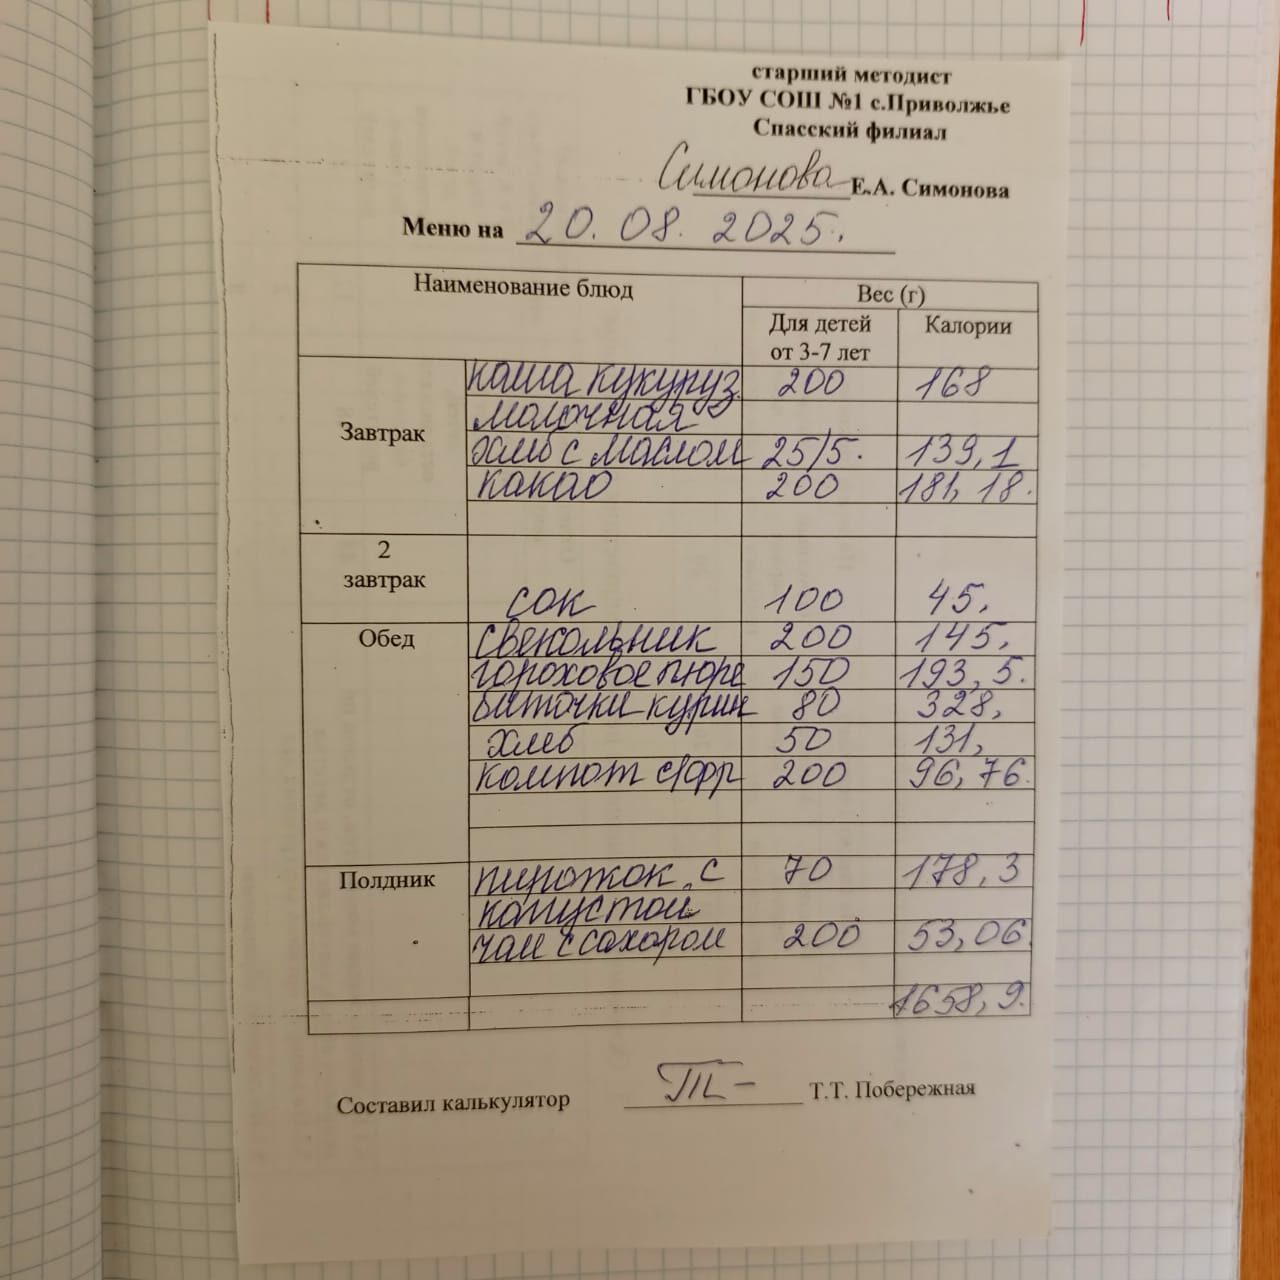 старший методист
ГБОУ СОШ №1 с.Приволжье
Спасский филиал
Симонова Е.А. Симонова
Меню на 20.08.2025.
Наименование блюд Вес (г)
Для детей от 3-7 лет Калории
Завтрак каша кукуруз. 200 168
молочная
хлеб с маслом 25/5. 139,1
какао 200 181,18.
2 завтрак сок 100 45,
Обед свекольник 200 145,
гороховое пюре 150 193,5.
биточки курин 80 328,
хлеб 50 131,
компот с/фр 200 96,76.
Полдник пирожок с 70 178,3
капустой
чай с сахаром 200 53,06
1658,9.
Составил калькулятор Т.Т. Побережная